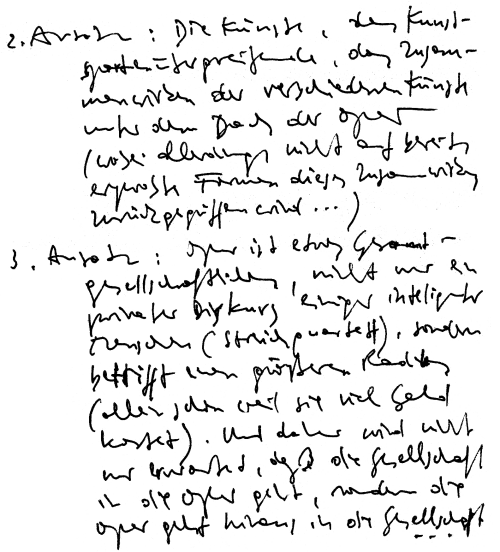 2. Ansatz: Die Künste, das Kunst-
spartenübergreifende, das Zusam-
menwirken der verschiedenen Künste
unter dem Dach der Oper
(wobei allerdings nicht auf bereits
erprobte Formen dieses Zusammenwirkens
zurückgegriffen wird ...)
3. Ansatz: Oper ist etwas Gesamt-
gesellschaftliches, nicht nur ein
privater Diskurs einiger intelligenter
Menschen (Streichquartett), sondern
betrifft einen größeren Radius
(allein schon weil sie viel Geld
kostet). Und daher wird nicht
nur erwartet, daß die Gesellschaft
in die Oper geht, sondern die
Oper geht hinaus in die Gesellschaft
...